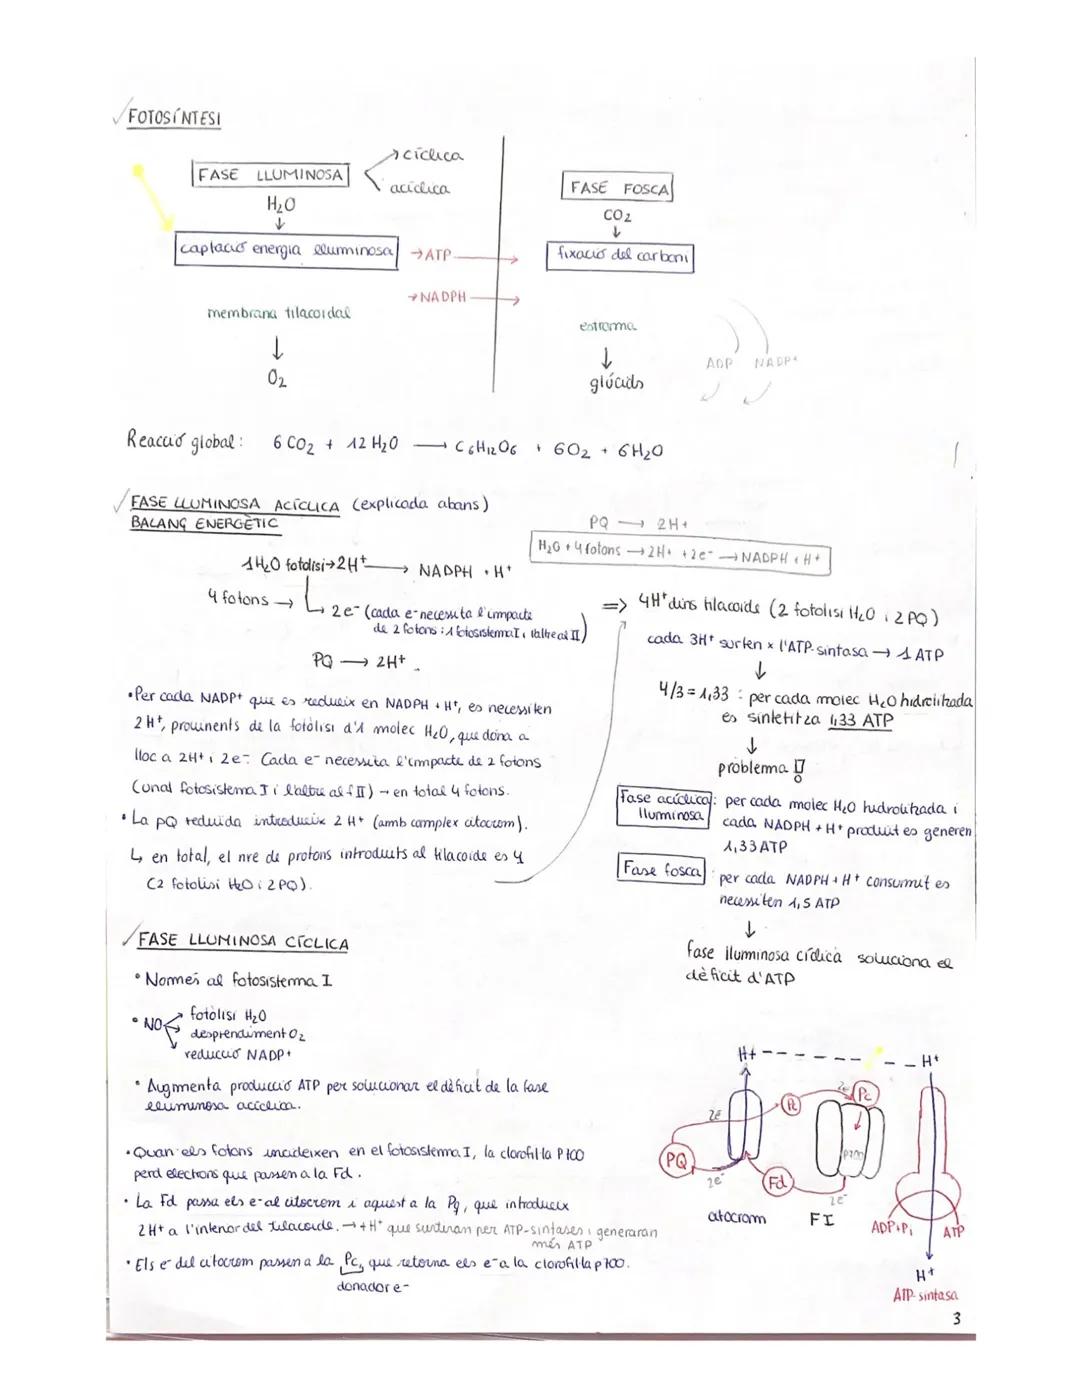 FOTOSÍNTESI
FASE LLUMINOSA
cíclica
acíclica
H₂O
captació energia lluminosa
→ATP
→NADPH
membrana tilacoidal
↓
O₂
FASE FOSCA
CO₂
↓
fixació del carboni
estroma
↓
glúcids
ADP NADP+
Reacció global: 6 CO₂ + 12 H₂O → C₆H₁₂O₆ + 6O₂ + 6H₂O
FASE LLUMINOSA ACÍCLICA (explicada abans)
BALANÇ ENERGÈTIC
1H₂O fotòlisi→2H⁺ → NADPH + H⁺
4 fotons → 2e⁻ (cada e⁻ necessita l'impacte
de 2 fotons: 1 fotosistema I i l'altre al II)
PQ → 2H⁺
•Per cada NADP⁺ que es redueix en NADPH + H⁺, es necessiten
2 H⁺, provinents de la fotòlisi d'1 molec H₂O, que dona a
lloc a 2H⁺ i 2e⁻. Cada e⁻ necessita l'impacte de 2 fotons
(un al fotosistema I i l'altre al f II) → en total 4 fotons.
• La PQ reduïda introdueix 2 H⁺ (amb complex citocrom).
↳ en total, el nre de protons introduïts al tilacoide es 4
(2 fotòlisi H₂O i 2 PQ).
PQ → 2H+
H₂O + 4 fotons → 2H+ + 2e⁻ → NADPH + H+
=> 4H⁺ dins tilacoide (2 fotolisi H₂O i 2 PQ)
cada 3H⁺ surten x l'ATP-sintasa → 1 ATP
↓
4/3 = 1,33 : per cada molec H₂O hidrolitzada
es sintetitza 1,33 ATP
↓
problema !
Fase acíclica lluminosa: per cada molec H₂O hidrolitzada i
cada NADPH + H⁺ produït es generen
1,33 ATP
Fase fosca: per cada NADPH + H⁺ consumit es
necessiten 1,5 ATP
↓
fase lluminosa cíclica soluciona el
dèficit d'ATP
FASE LLUMINOSA CÍCLICA
• Només al fotosistema I
• NO
fotòlisi H₂O
desprendiment O₂
reducció NADP⁺
• Augmenta producció ATP per solucionar el dèficit de la fase
lluminosa acíclica.
• Quan els fotons incideixen en el fotosistema I, la clorofil·la P700
perd electrons que passen a la Fd.
• La Fd passa els e⁻ al citocrom i aquest a la Pq, que introdueix
2 H⁺ a l'interior del tilacoide. → +H⁺ que sortiran per ATP-sintases i generaran
més ATP
• Els e⁻ del citocrom passen a la Pc, que retorna els e⁻ a la clorofil·la p700.
donador e⁻
H+
H⁺
2e⁻
Pc
2e⁻
Pc
PQ
2e⁻
Fd
2e⁻
p700
citocrom
FI
ADP+Pi
ATP
H⁺
ATP-sintasa
3